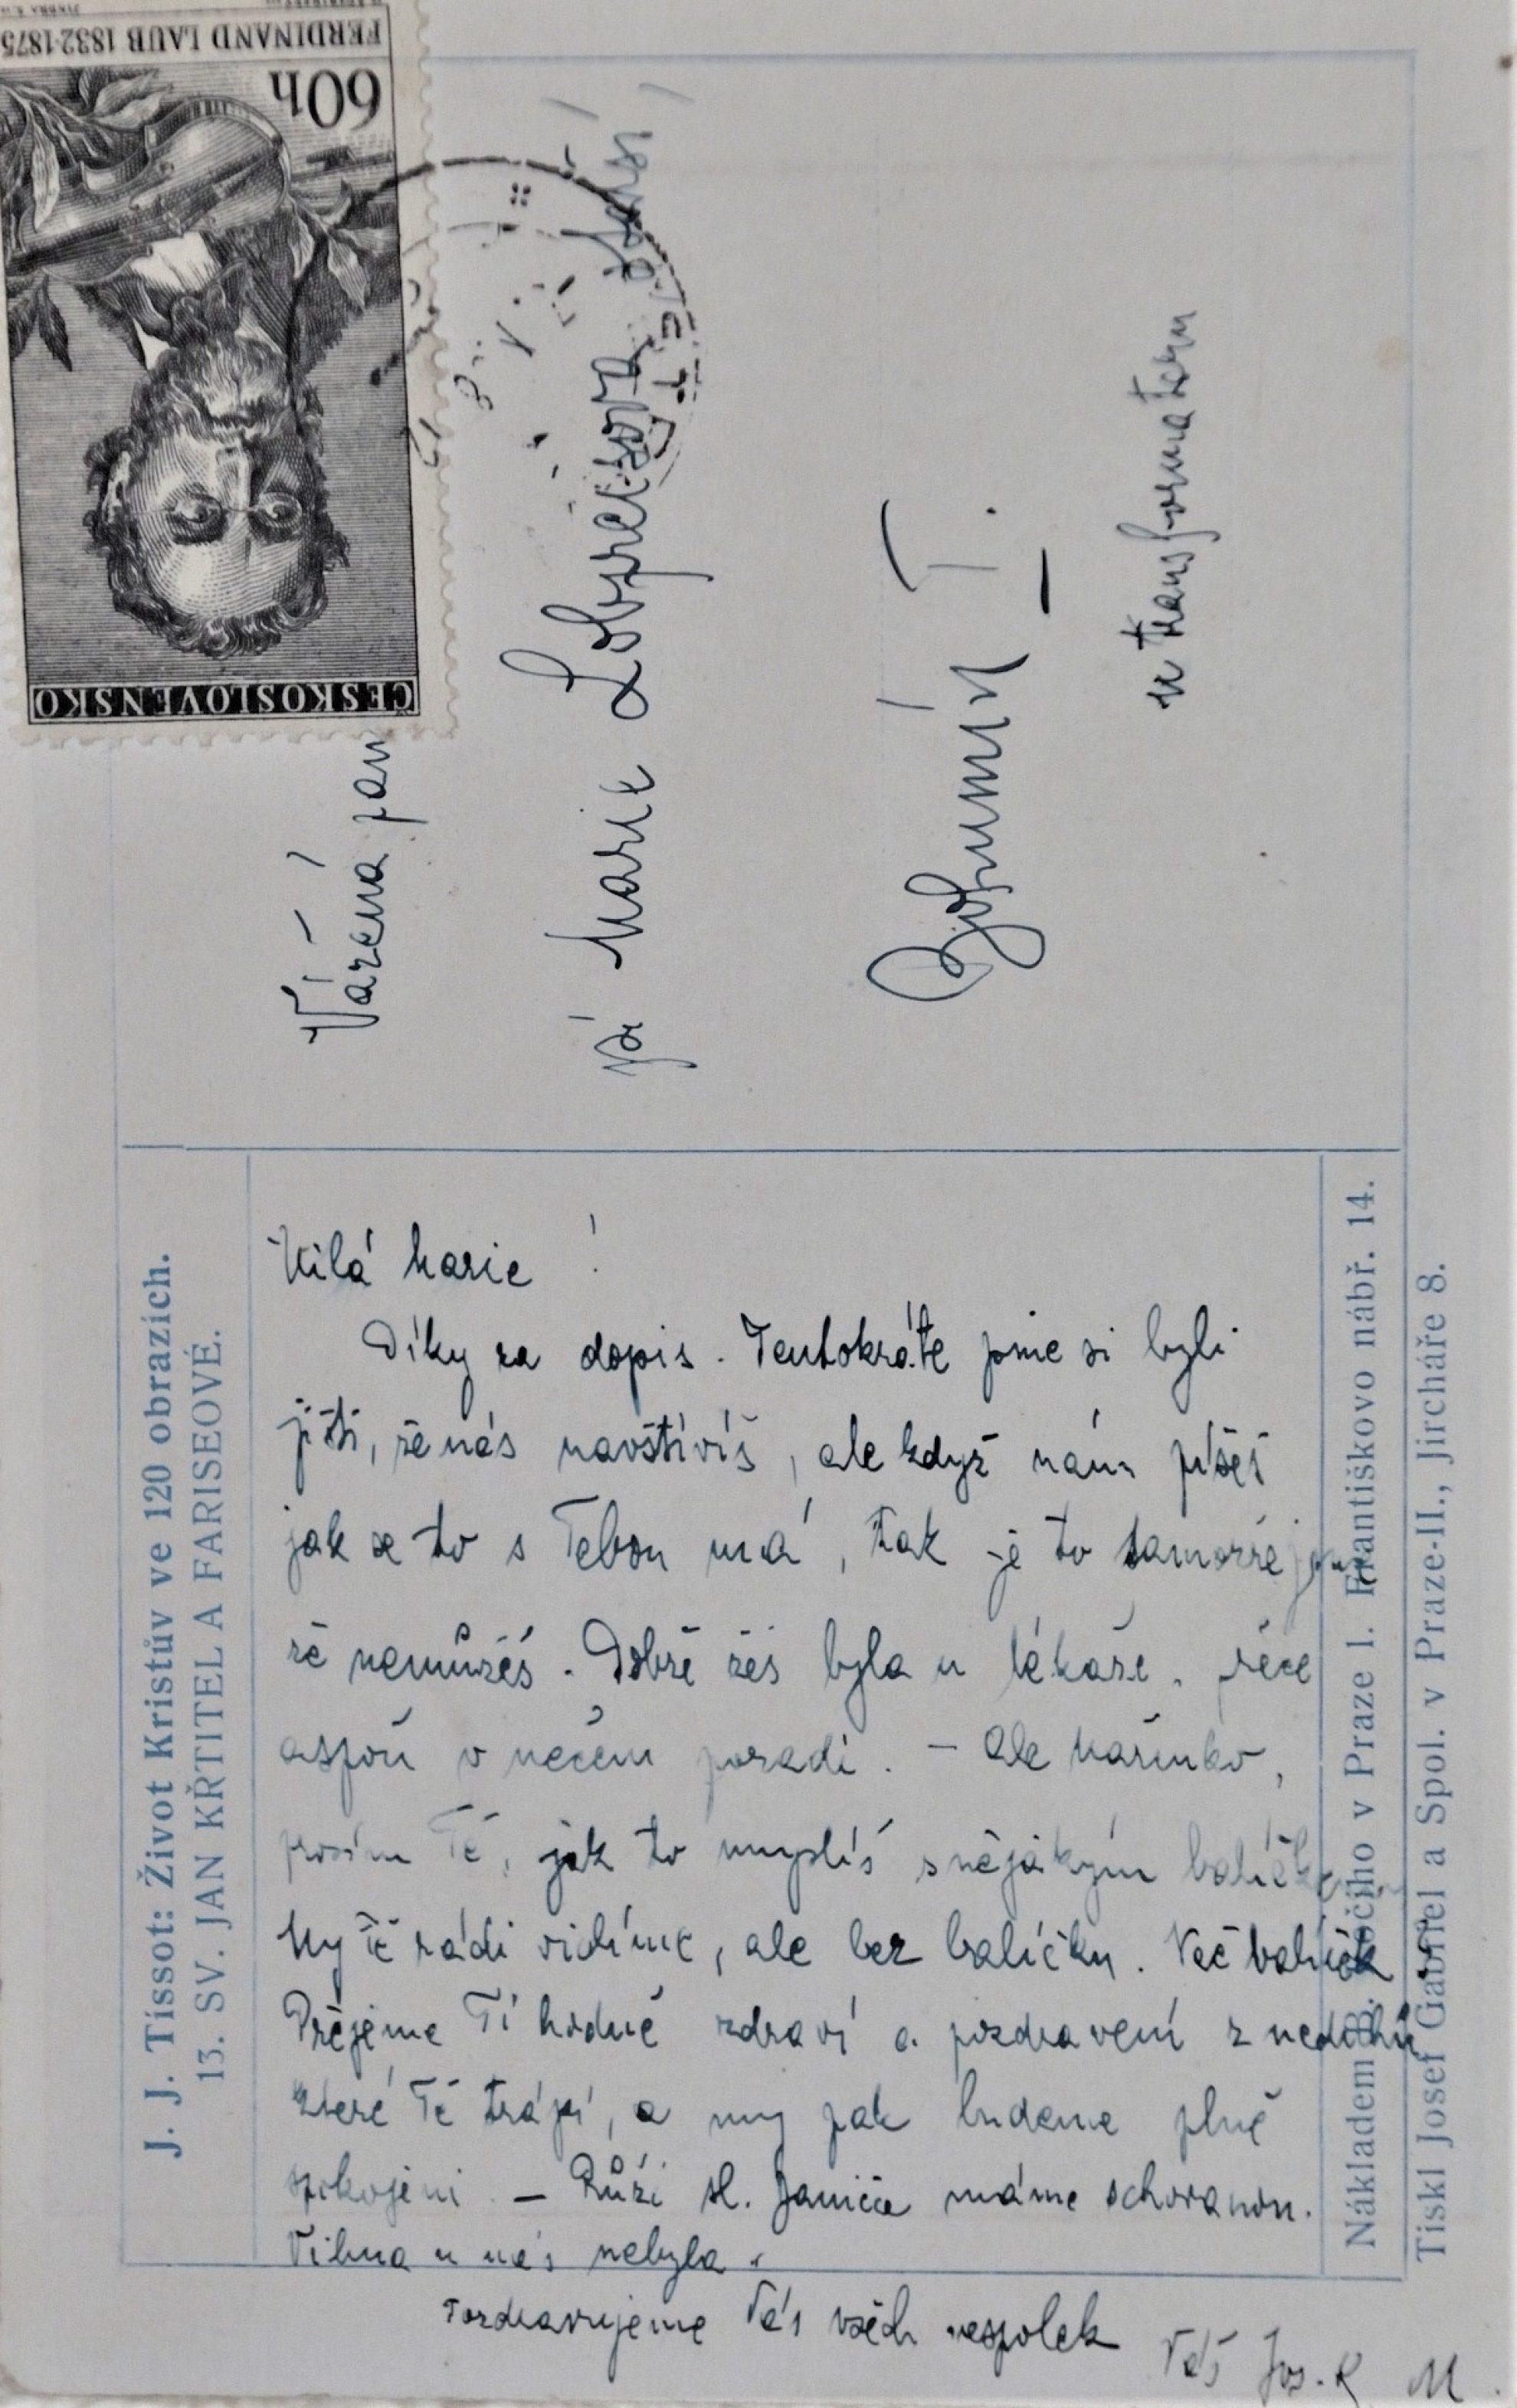 J. J. Tissot: Život Kristův ve 120 obrazích.
13. SV. JAN KŘTITEL A FARISEOVÉ.
Milá Marie !
Díky za dopis. Tentokráte jsme si byli
jisti, že nás navštívíš, ale když nám píšeš
jak se to s Tebou má, tak je to samozřejmé
že nemůžéš. Dobře žes byla u lékaře.
aspoň v něčem poradí. – Ale Mařinko,
prosím Tě, jak to myslíš s nějakým balíčkem
My Tě rádi vidíme, ale bez balíčku. Več balíček
Přejeme Ti hodně zdraví a pozdravení z neduhů
které Tě trápí, a my pak budeme plně
spokojeni – Růži sl. máme schovanou.
u nás nebyla.
Pozdravujeme Vás všech vespolek
Váš Jos. K M.
Nákladem B. Kočího v Praze I. Františkovo nábř. 14.
Tiskl Josef Gabriel a Spol. v Praze-II., Jircháře 8.
FERDINAND LAUB 1832-1875
60h
ČESKOSLOVENSKO
Vážená paní
pí Marie starší
Bohumín I.
u transformátoru